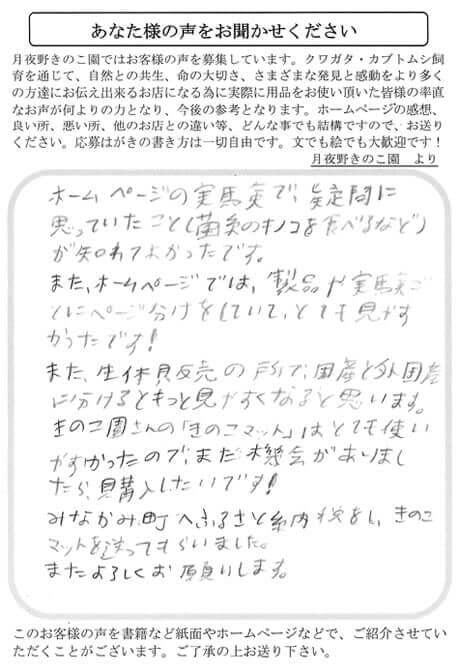 あなた様の声をお聞かせください
月夜野きのこ園ではお客様の声を募集しています。クワガタ・カブトムシ飼
育を通じて、自然との共生、命の大切さ、さまざまな発見と感動をより多く
の方達にお伝え出来るお店になる為に実際に用品をお使い頂いた皆様の率直
なお声が何よりの力となり、今後の参考となります。ホームページの感想、
良い所、悪い所、他のお店との違い等、どんな事でも結構ですので、お送り
ください。応募はがきの書き方は一切自由です。文でも絵でも大歓迎です！
月夜野きのこ園　より
ホームページの実験で、疑問に
思っていたこと(菌糸のキノコを食べるなど)
が知れてよかったです。
また、ホームページでは、製品や実験ご
とにページ分けをしていて、とても見やす
かったです！
また、生体販売の所で、国産と外国産
に分けるともっと見やすくなると思います。
きのこ園さんの「きのこマット」はとても使い
やすかったので、また機会がありまし
たら、購入したいです！
みなかみ町へふるさと納税をし、きのこ
マットを送ってもらいました。
またよろしくお願いします。
このお客様の声を書籍など紙面やホームページなどで、ご紹介させてい
ただくことがございます。ご了承の上お送り下さい。